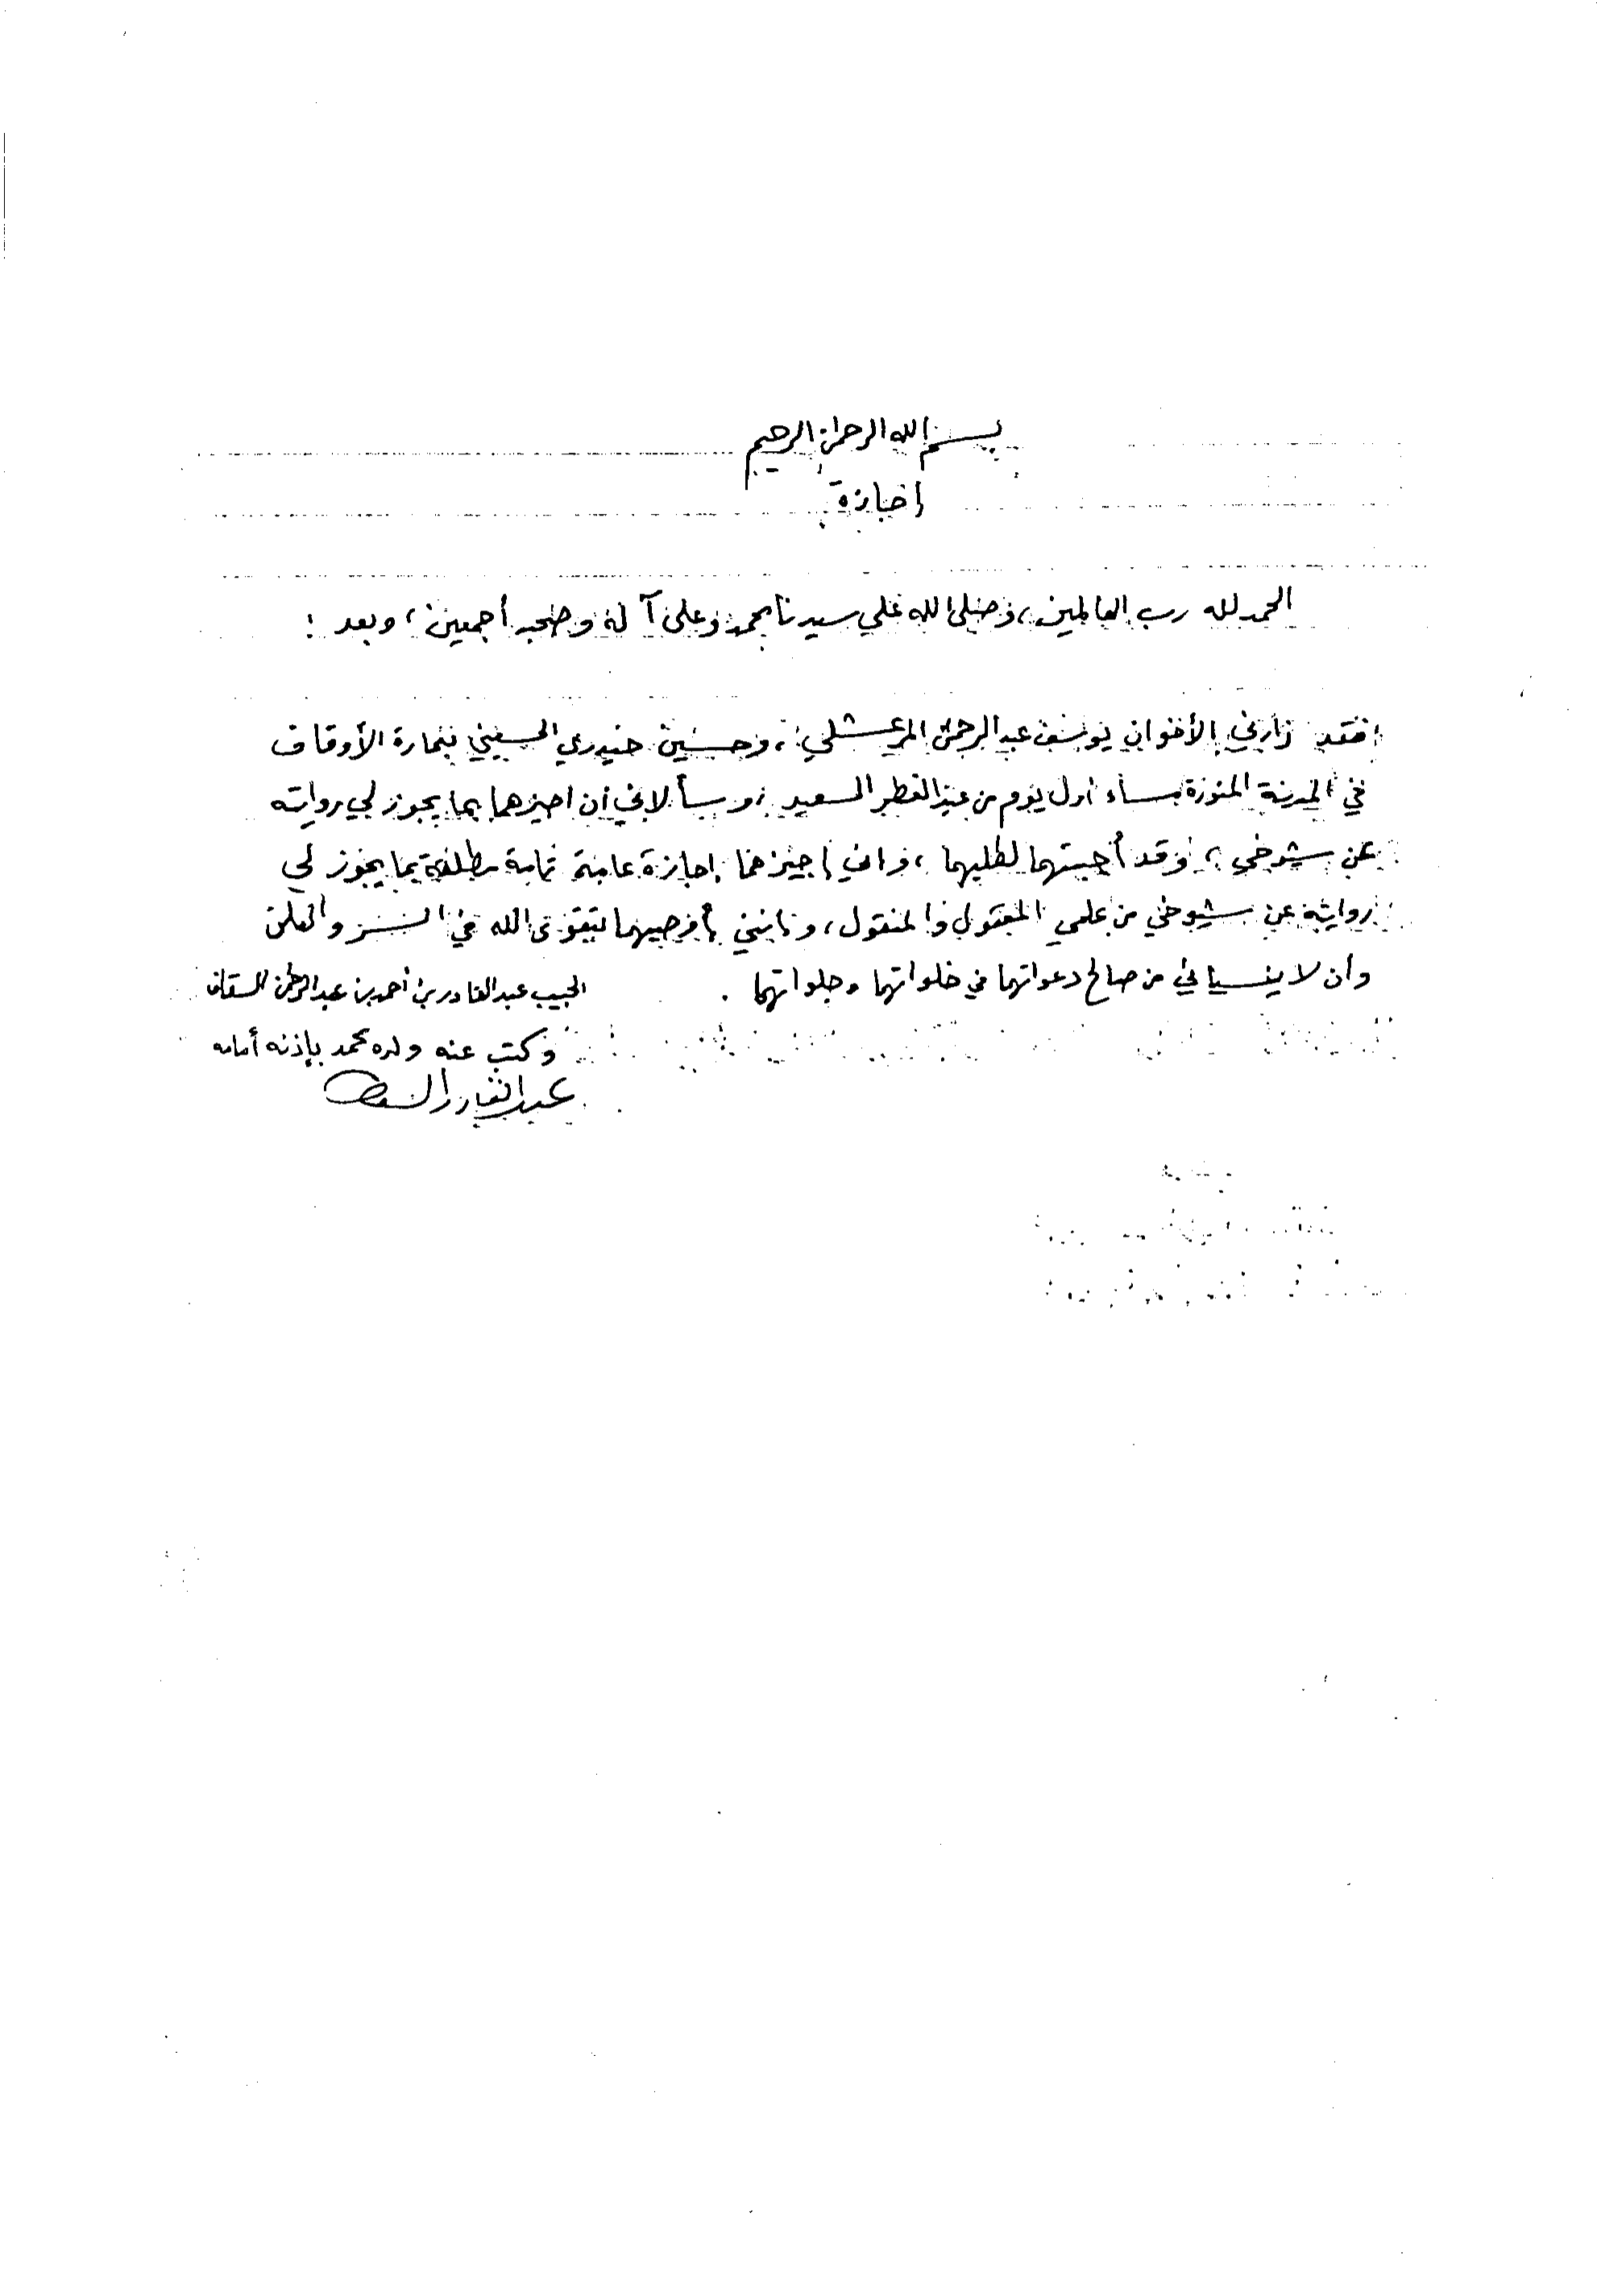 بسم الله الرحمن الرحيم
إجازة
الحمد لله رب العالمين، وصلى الله على سيدنا محمد وعلى آله وصحبه أجمعين، وبعد :
فقد زارني الأخوان يوسف عبد الرحمن المرعشلي، وحسين حيدري الحسيني بعمارة الأوقاف
في المدينة المنورة مساء أول يوم من عيد الفطر السعيد، وسألاني أن أجيزهما بما يجوز لي روايته
عن شيوخي، وقد أجبتهما لطلبهما، وإني أجيزهما إجازة عامة تامة مطلقة بما يجوز لي
روايته عن شيوخي من علمي المعقول والمنقول، وإنني أوصيهما بتقوى الله في السر والعلن
وأن لا ينسياني من صالح دعواتهما في خلواتهما وجلواتهما .
الحبيب عبد القادر بن أحمد بن عبد الرحمن السقاف
وكتب عنه ولده محمد بإذنه أمامه
عبد القادر السقاف